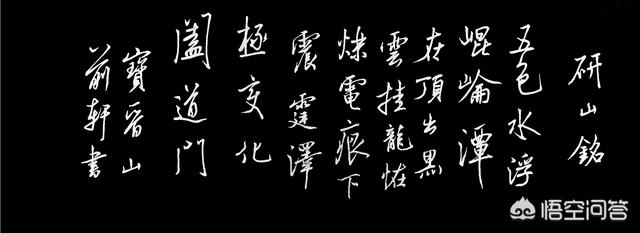 研山銘
五色水浮
崐崘潭
在頂出黑
雲挂龍恠
爍電痕下
震霆澤
極变化
闔道門
寶晉山
前軒書
悟空问答